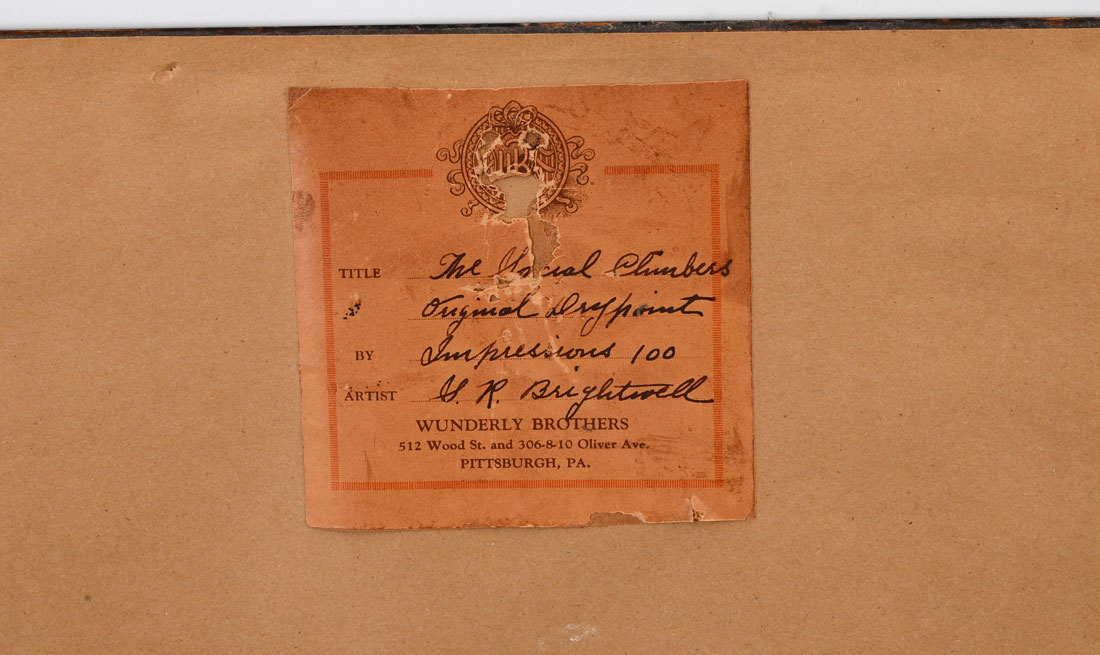 TITLE The Social Climbers
Original Drypoint
BY Impressions 100
ARTIST L. R. Brightwell
WUNDERLY BROTHERS
512 Wood St. and 306-8-10 Oliver Ave.
PITTSBURGH, PA.